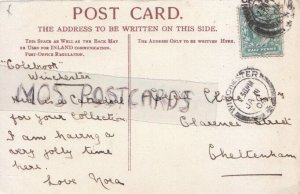 POST CARD.
THE ADDRESS TO BE WRITTEN ON THIS SIDE.
THIS SPACE AS WELL AS THE BACK MAY
BE USED FOR INLAND COMMUNICATION.
POST-OFFICE REGULATION.
THE ADDRESS ONLY TO BE WRITTEN HERE.
"Colebrook"
Winchester
MOST POSTCARDS
is a Cathedral
for your Collection
I am having a
very jolly time
here.
Love Nora
Clarence Street
Cheltenham
WINCHESTER
HALF PENNY